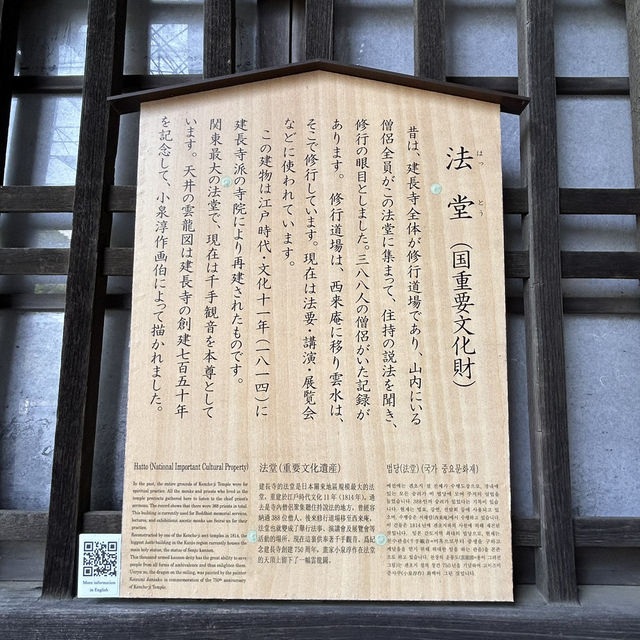 法堂（国重要文化財）
はっとう
昔は、建長寺全体が修行道場であり、山内にいる
僧侶全員がこの法堂に集まって、住持の説法を聞き、
修行の眼目としました。三八八人の僧侶がいた記録が
あります。修行道場は、西来庵に移り雲水は、
そこで修行しています。現在は法要・講演・展覧会
などに使われています。
この建物は江戸時代・文化十一年（一八一四）に
建長寺派の寺院により再建されたものです。
関東最大の法堂で、現在は千手観音を本尊として
います。天井の雲龍図は建長寺の創建七百五十年
を記念して、小泉淳作画伯によって描かれました。
Hatto (National Important Cultural Property)
In the past, the entire grounds of Kencho-ji Temple were for
spiritual practice. All the monks and priests who lived in the
temple precincts gathered here to listen to the chief priest's
sermons. The record shows that there were 388 priests in total.
This building is currently used for Buddhist services, lectures,
and exhibitions
practice.
Reconstructed by one of the Kencho-ji sect temples in 1814, the
largest
main holy statue, the statue of Senju kannon.
This thousand armed kannon deity has the great ability to save
people from all forms of ambivalence and thus enlighten them.
Unryu-zu, the dragon on the ceiling, was painted by the painter
Koizumi Junsaku in commemoration of the 750th anniversary
of Kencho-ji Temple.
More information
in English
法堂（重要文化遺産）
建長寺的法堂是日本關東地區規模最大的法
堂，重建於江戶時代文化11年（1814年）。過
去是寺內僧侶聚集聽住持說法的地方，曾經容
納過388位僧人，後來修行道場移至西來庵，
法堂也就變成了舉行法事、演講會及展覽會等
活動的場所。現在這裏供奉著千手觀音。為紀
念建長寺創建750周年，畫家小泉淳作在法堂
的天頂上留下了一幅雲龍圖。
법당(法堂) (국가 중요문화재)